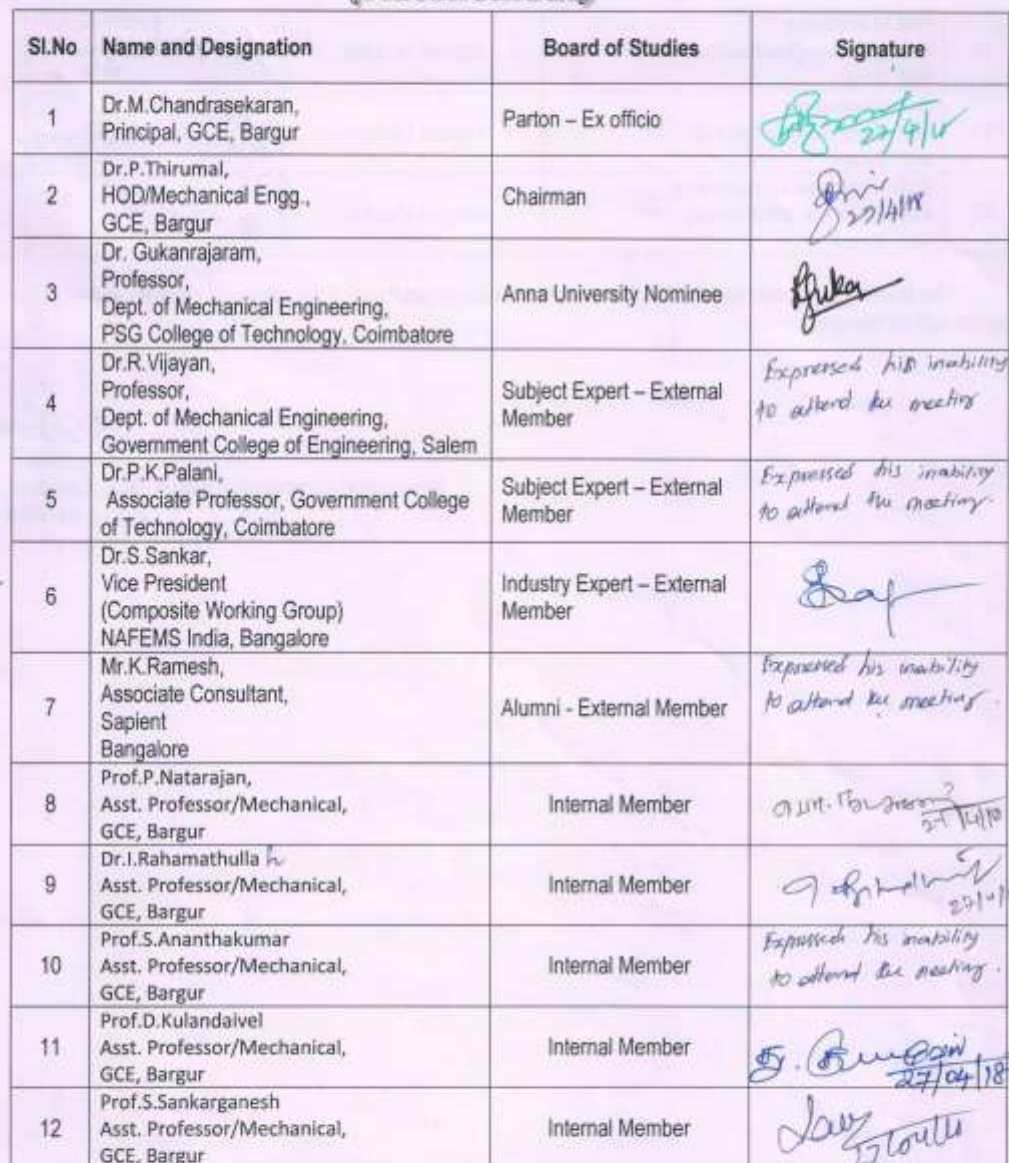 Sl.No Name and Designation Board of Studies Signature
1 Dr.M.Chandrasekaran,
Principal, GCE, Bargur
Parton – Ex officio
27/4/18
2 Dr.P.Thirumal,
HOD/Mechanical Engg.,
GCE, Bargur
Chairman
27/4/18
3 Dr. Gukanrajaram,
Professor,
Dept. of Mechanical Engineering,
PSG College of Technology, Coimbatore
Anna University Nominee
4 Dr.R.Vijayan,
Professor,
Dept. of Mechanical Engineering,
Government College of Engineering, Salem
Subject Expert – External
Member
Expressed his inability
to attend the meeting
5 Dr.P.K.Palani,
Associate Professor, Government College
of Technology, Coimbatore
Subject Expert – External
Member
Expressed his inability
to attend the meeting.
6 Dr.S.Sankar,
Vice President
(Composite Working Group)
NAFEMS India, Bangalore
Industry Expert – External
Member
7 Mr.K.Ramesh,
Associate Consultant,
Sapient
Bangalore
Alumni - External Member
Expressed his inability
to attend the meeting.
8 Prof.P.Natarajan,
Asst. Professor/Mechanical,
GCE, Bargur
Internal Member
9 Dr.I.Rahamathulla h
Asst. Professor/Mechanical,
GCE, Bargur
Internal Member
10 Prof.S.Ananthakumar
Asst. Professor/Mechanical,
GCE, Bargur
Internal Member
Expressed his inability
to attend the meeting.
11 Prof.D.Kulandaivel
Asst. Professor/Mechanical,
GCE, Bargur
Internal Member
27/04/18
12 Prof.S.Sankarganesh
Asst. Professor/Mechanical,
GCE, Bargur
Internal Member